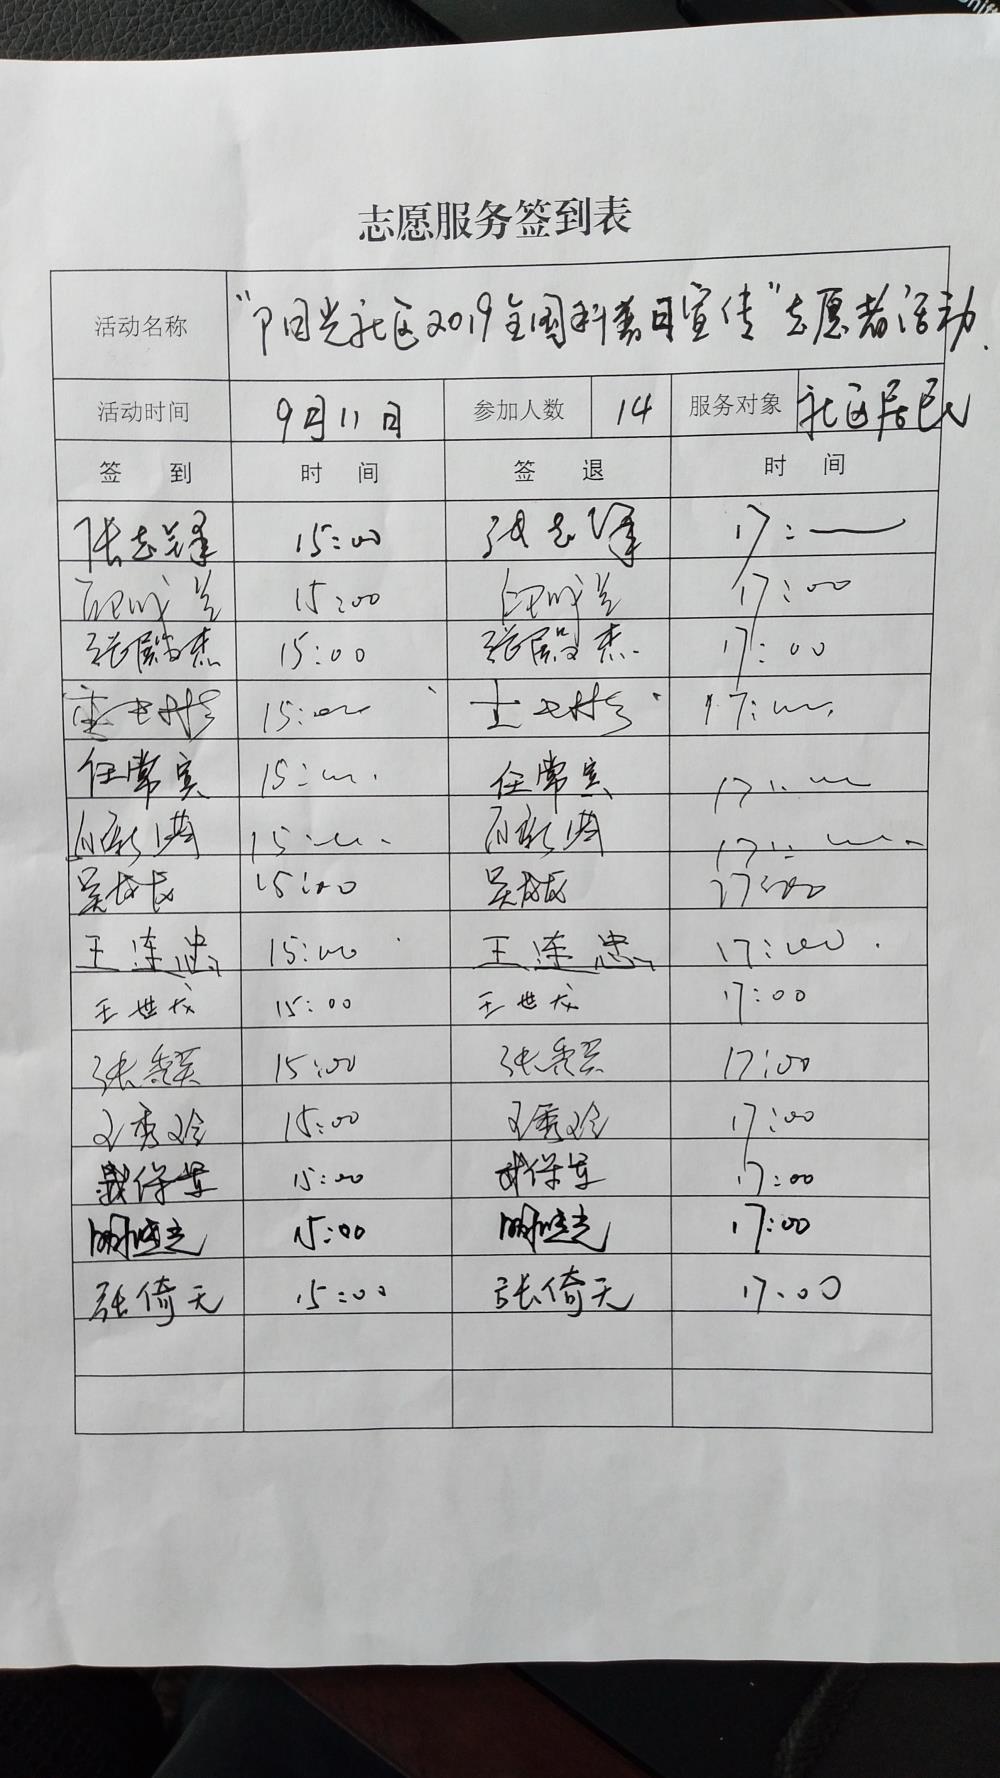 志愿服务签到表
活动名称 "阳光社区2019全国科普日宣传"志愿者活动.
活动时间 9月11日 参加人数 14 服务对象 社区居民
签 到 时 间 签 退 时 间
张志锋 15:00 张志锋 17:
15:00 17:00
张殿杰 15:00 张殿杰 17:00
15:00 17:00
任常宾 15:00 任常宾 17:00
15:00 17:00
吴成长 15:00 吴成长 17:00
王连忠 15:00 王连忠 17:00
王世龙 15:00 王世龙 17:00
张 15:00 张 17:00
王秀玲 15:00 王秀玲 17:00
15:00 17:00
15:00 17:00
张倚天 15:00 张倚天 17:00